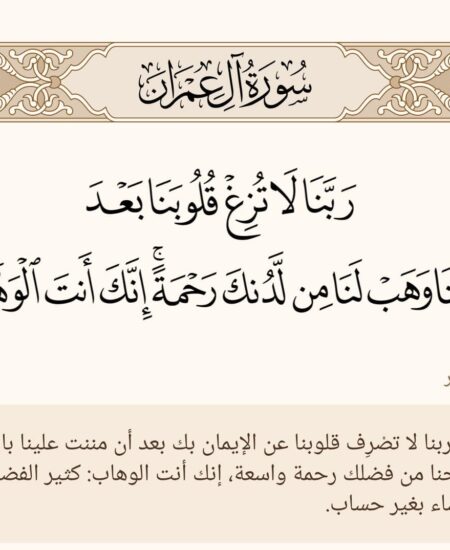 سُورَةُ آلِ عِمْرَان
رَبَّنَا لَا تُزِغْ قُلُوبَنَا بَعْدَ
وَهَبْ لَنَا مِن لَّدُنكَ رَحْمَةً ۚ إِنَّكَ أَنتَ
ربنا لا تصْرِف قلوبنا عن الإيمان بك بعد أن مننت علينا
من فضلك رحمة واسعة، إنك أنت الوهاب: كثير
بغير حساب.